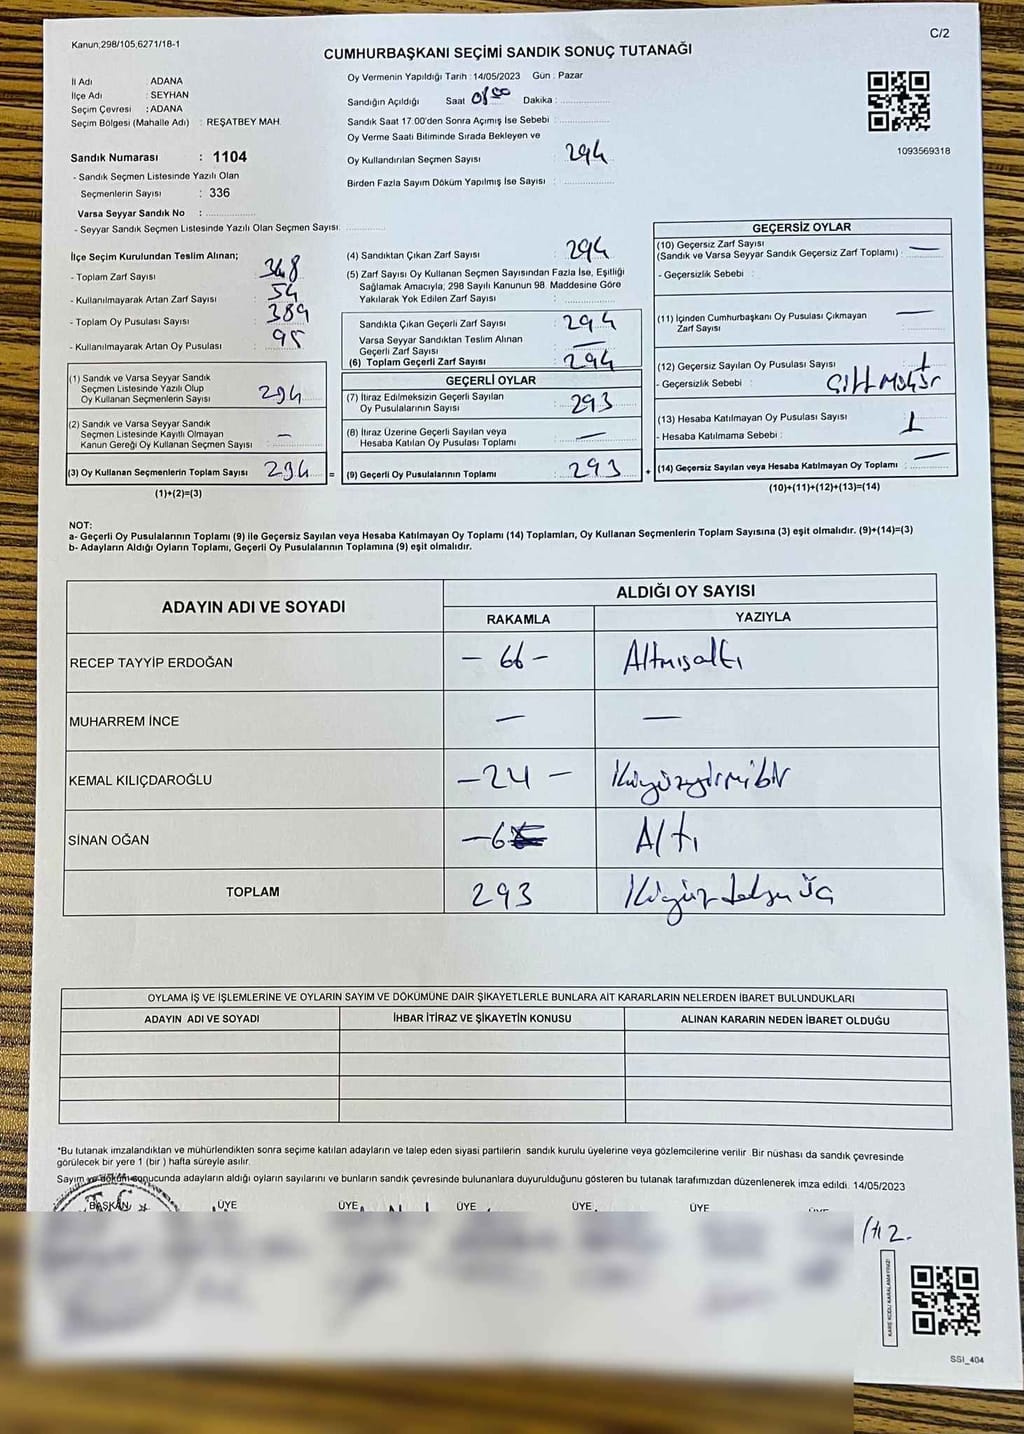 Kanun;298/105,6271/18-1
C/2
CUMHURBAŞKANI SEÇİMİ SANDIK SONUÇ TUTANAĞI
İl Adı : ADANA
İlçe Adı : SEYHAN
Seçim Çevresi : ADANA
Seçim Bölgesi (Mahalle Adı) : REŞATBEY MAH.
Sandık Numarası : 1104
- Sandık Seçmen Listesinde Yazılı Olan
Seçmenlerin Sayısı : 336
Varsa Seyyar Sandık No :
- Seyyar Sandık Seçmen Listesinde Yazılı Olan Seçmen Sayısı:
Oy Vermenin Yapıldığı Tarih : 14/05/2023 Gün : Pazar
Sandığın Açıldığı Saat 08 00 Dakika :
Sandık Saat 17.00'den Sonra Açımış İse Sebebi :
Oy Verme Saati Bitiminde Sırada Bekleyen ve
Oy Kullandırılan Seçmen Sayısı : 294
Birden Fazla Sayım Döküm Yapılmış İse Sayısı :
1093569318
İlçe Seçim Kurulundan Teslim Alınan;
- Toplam Zarf Sayısı : 348
- Kullanılmayarak Artan Zarf Sayısı : 54
- Toplam Oy Pusulası Sayısı : 389
- Kullanılmayarak Artan Oy Pusulası : 95
(1) Sandık ve Varsa Seyyar Sandık
Seçmen Listesinde Yazılı Olup
Oy Kullanan Seçmenlerin Sayısı : 294
(2) Sandık ve Varsa Seyyar Sandık
Seçmen Listesinde Kayıtlı Olmayan
Kanun Gereği Oy Kullanan Seçmen Sayısı : -
(3) Oy Kullanan Seçmenlerin Toplam Sayısı : 294
(1)+(2)=(3)
(4) Sandıktan Çıkan Zarf Sayısı : 294
(5) Zarf Sayısı Oy Kullanan Seçmen Sayısından Fazla İse, Eşitliği
Sağlamak Amacıyla; 298 Sayılı Kanunun 98. Maddesine Göre
Yakılarak Yok Edilen Zarf Sayısı :
Sandıkta Çıkan Geçerli Zarf Sayısı : 294
Varsa Seyyar Sandıktan Teslim Alınan
Geçerli Zarf Sayısı : —
(6) Toplam Geçerli Zarf Sayısı : 294
GEÇERLİ OYLAR
(7) İtiraz Edilmeksizin Geçerli Sayılan
Oy Pusulalarının Sayısı : 293
(8) İtiraz Üzerine Geçerli Sayılan veya
Hesaba Katılan Oy Pusulası Toplamı : —
= (9) Geçerli Oy Pusulalarının Toplamı : 293
GEÇERSİZ OYLAR
(10) Geçersiz Zarf Sayısı
(Sandık ve Varsa Seyyar Sandık Geçersiz Zarf Toplamı) : —
- Geçersizlik Sebebi :
(11) İçinden Cumhurbaşkanı Oy Pusulası Çıkmayan
Zarf Sayısı : —
(12) Geçersiz Sayılan Oy Pusulası Sayısı : 1
- Geçersizlik Sebebi :
(13) Hesaba Katılmayan Oy Pusulası Sayısı : 1
- Hesaba Katılmama Sebebi :
+ (14) Geçersiz Sayılan veya Hesaba Katılmayan Oy Toplamı : —
(10)+(11)+(12)+(13)=(14)
NOT:
a- Geçerli Oy Pusulalarının Toplamı (9) ile Geçersiz Sayılan veya Hesaba Katılmayan Oy Toplamı (14) Toplamları, Oy Kullanan Seçmenlerin Toplam Sayısına (3) eşit olmalıdır. (9)+(14)=(3)
b- Adayların Aldığı Oyların Toplamı, Geçerli Oy Pusulalarının Toplamına (9) eşit olmalıdır.
ADAYIN ADI VE SOYADI ALDIĞI OY SAYISI
RAKAMLA YAZIYLA
RECEP TAYYİP ERDOĞAN - 66 - Altmışaltı
MUHARREM İNCE — —
KEMAL KILIÇDAROĞLU - 24 - İkiyüzyirmibir
SİNAN OĞAN - 6 Altı
TOPLAM 293 İkiyüz doksan üç
OYLAMA İŞ VE İŞLEMLERİNE VE OYLARIN SAYIM VE DÖKÜMÜNE DAİR ŞİKAYETLERLE BUNLARA AİT KARARLARIN NELERDEN İBARET BULUNDUKLARI
ADAYIN ADI VE SOYADI İHBAR İTİRAZ VE ŞİKAYETİN KONUSU ALINAN KARARIN NEDEN İBARET OLDUĞU
*Bu tutanak imzalandıktan ve mühürlendikten sonra seçime katılan adayların ve talep eden siyasi partilerin sandık kurulu üyelerine veya gözlemcilerine verilir. Bir nüshası da sandık çevresinde
görülecek bir yere 1 (bir) hafta süreyle asılır.
Sayım ve döküm sonucunda adayların aldığı oyların sayılarını ve bunların sandık çevresinde bulunanlara duyurulduğunu gösteren bu tutanak tarafımızdan düzenlenerek imza edildi. 14/05/2023
T.C.
BAŞKAN ÜYE ÜYE ÜYE ÜYE ÜYE
KARE KODU KARALAMAYINIZ!
SSI_404